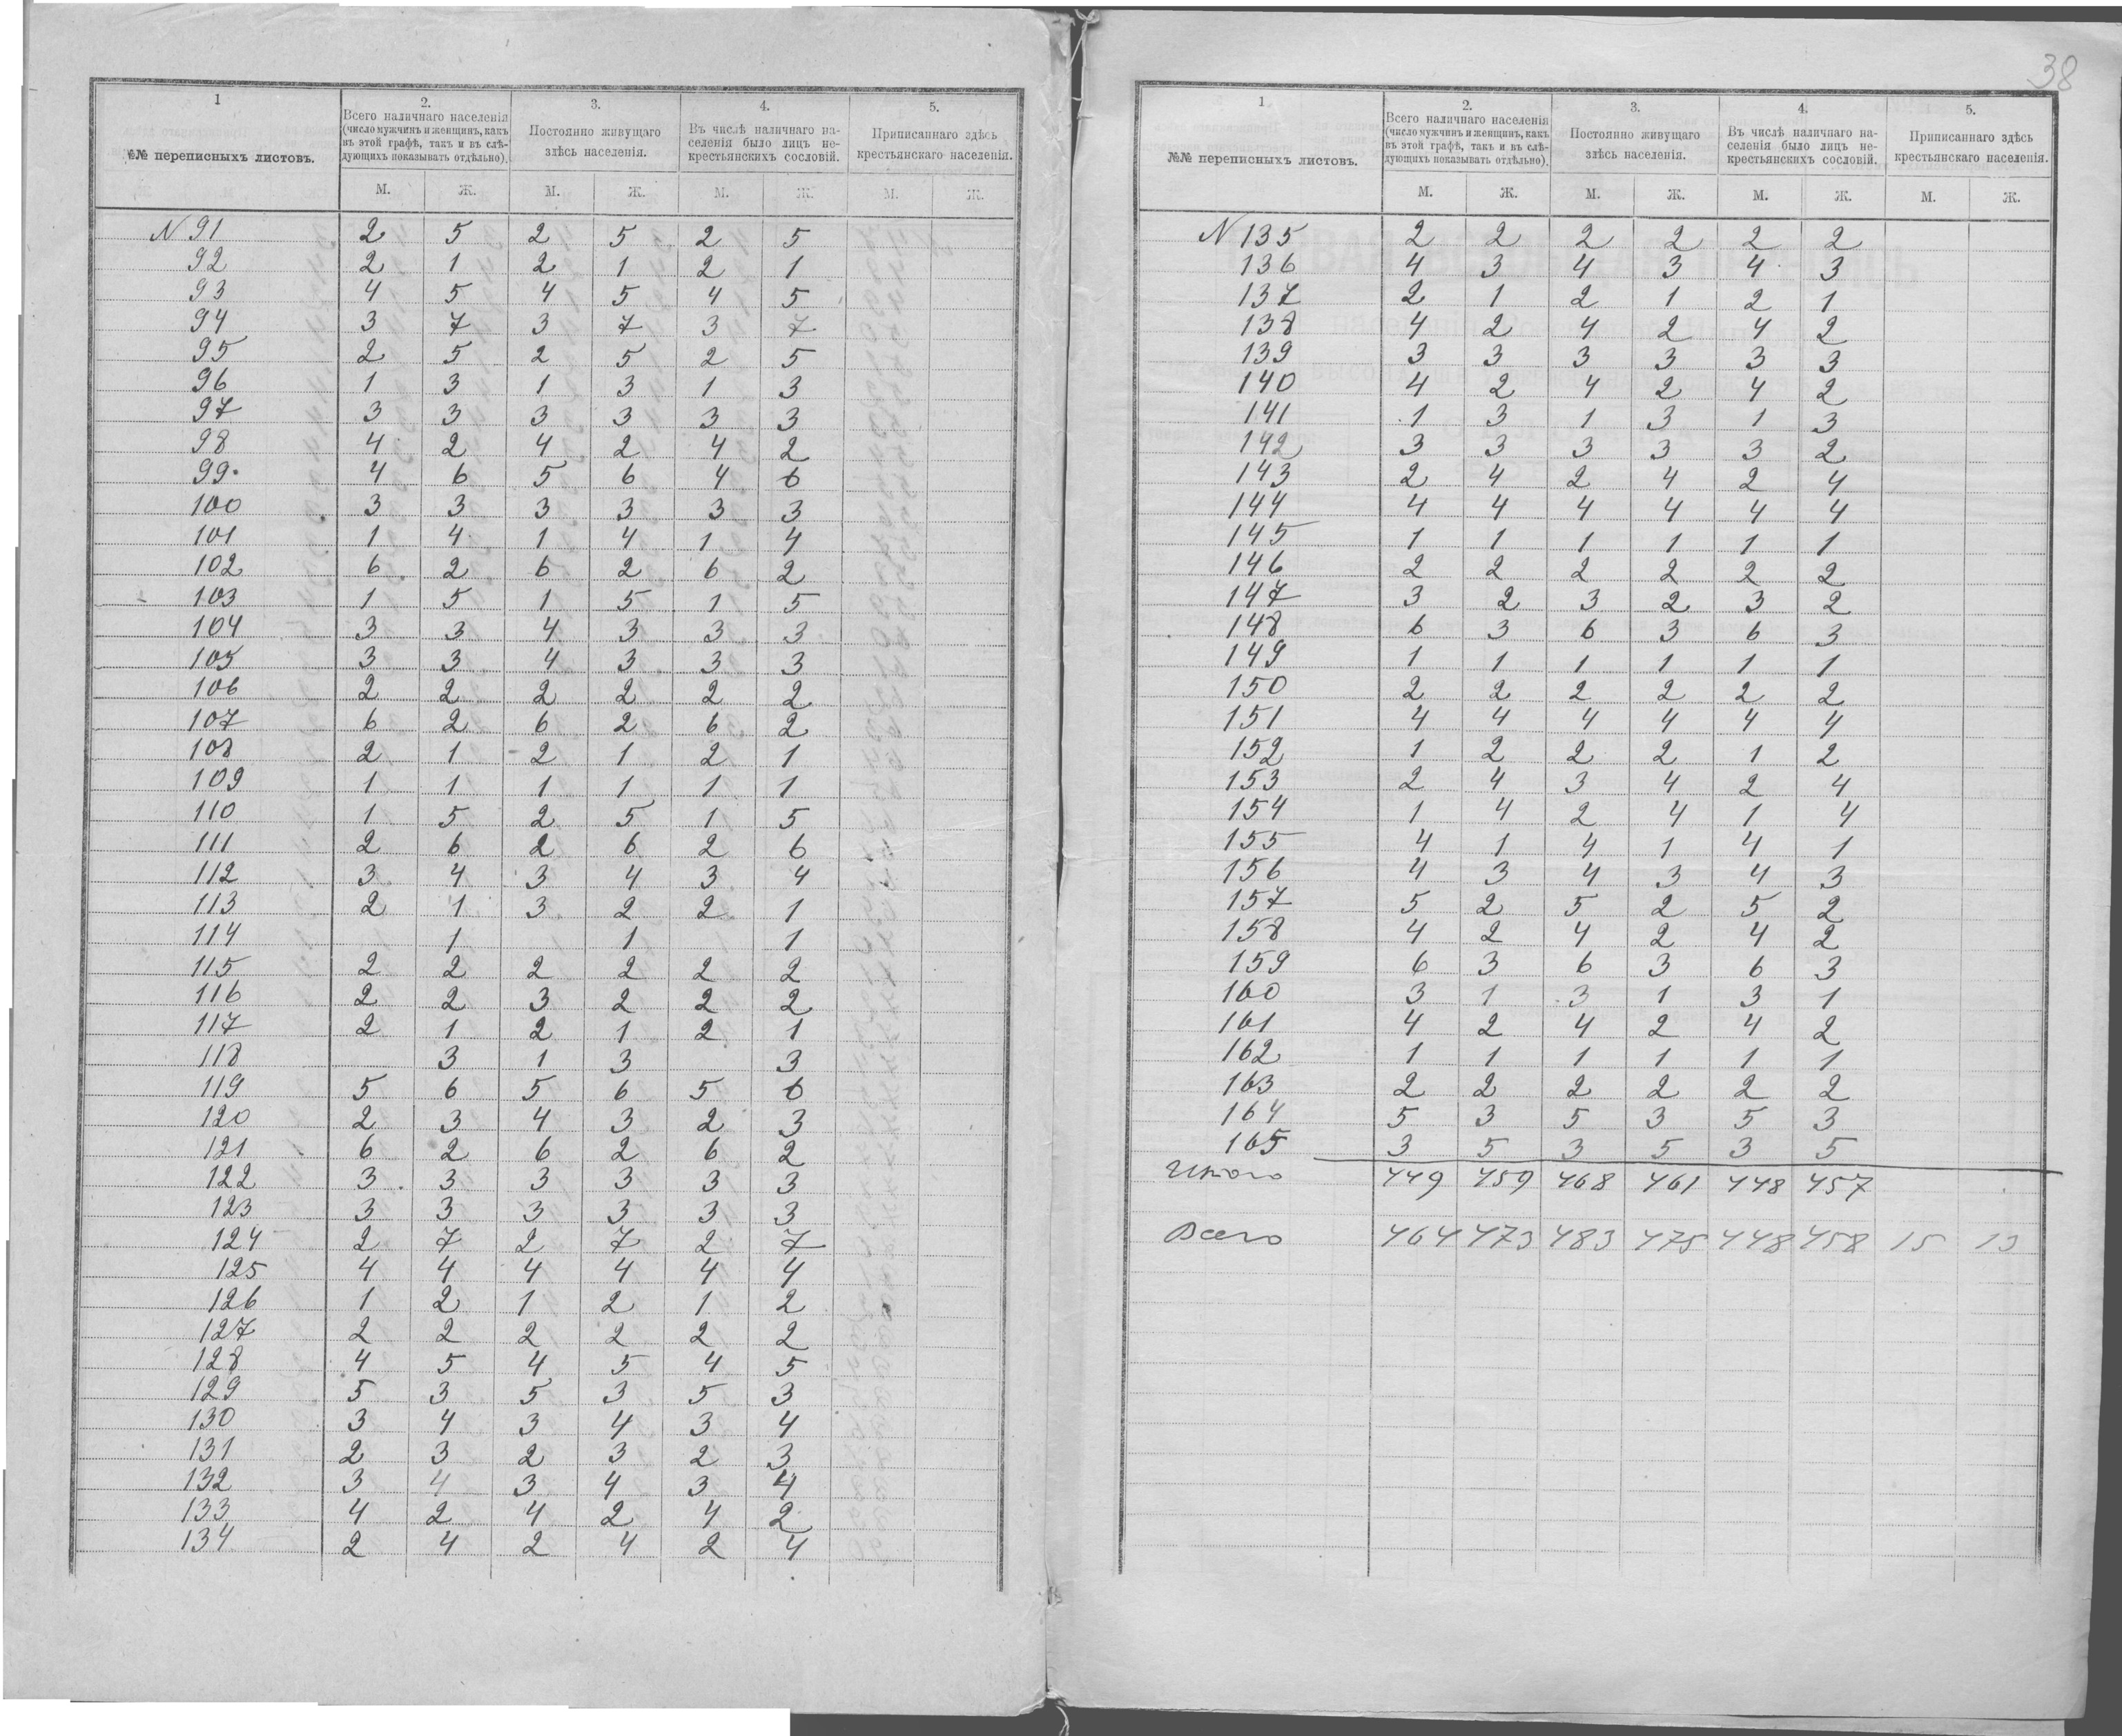 1 2. 3. 4. 5.
№№ переписныхъ листовъ. Всего наличнаго населенія (число мужчинъ и женщинъ, какъ въ этой графѣ, такъ и въ слѣдующихъ показывать отдѣльно). Постоянно живущаго здѣсь населенія. Въ числѣ наличнаго населенія было лицъ некрестьянскихъ сословій. Приписаннаго здѣсь крестьянскаго населенія.
М. Ж. М. Ж. М. Ж. М. Ж.
N 91 2 5 2 5 2 5
92 2 1 2 1 2 1
93 4 5 4 5 4 5
94 3 7 3 7 3 7
95 2 5 2 5 2 5
96 1 3 1 3 1 3
97 3 3 3 3 3 3
98 4 2 4 2 4 2
99 4 6 5 6 4 6
100 3 3 3 3 3 3
101 1 4 1 4 1 4
102 6 2 6 2 6 2
103 1 5 1 5 1 5
104 3 3 4 3 3 3
105 3 3 4 3 3 3
106 2 2 2 2 2 2
107 6 2 6 2 6 2
108 2 1 2 1 2 1
109 1 1 1 1 1 1
110 1 5 2 5 1 5
111 2 6 2 6 2 6
112 3 4 3 4 3 4
113 2 1 3 2 2 1
114 1 1 1
115 2 2 2 2 2 2
116 2 2 3 2 2 2
117 2 1 2 1 2 1
118 3 1 3 3
119 5 6 5 6 5 6
120 2 3 4 3 2 3
121 6 2 6 2 6 2
122 3 3 3 3 3 3
123 3 3 3 3 3 3
124 2 7 2 7 2 7
125 4 4 4 4 4 4
126 1 2 1 2 1 2
127 2 2 2 2 2 2
128 4 5 4 5 4 5
129 5 3 5 3 5 3
130 3 4 3 4 3 4
131 2 3 2 3 2 3
132 3 4 3 4 3 4
133 4 2 4 2 4 2
134 2 4 2 4 2 4
38
1 2. 3. 4. 5.
№№ переписныхъ листовъ. Всего наличнаго населенія (число мужчинъ и женщинъ, какъ въ этой графѣ, такъ и въ слѣдующихъ показывать отдѣльно). Постоянно живущаго здѣсь населенія. Въ числѣ наличнаго населенія было лицъ некрестьянскихъ сословій. Приписаннаго здѣсь крестьянскаго населенія.
М. Ж. М. Ж. М. Ж. М. Ж.
N 135 2 2 2 2 2 2
136 4 3 4 3 4 3
137 2 1 2 1 2 1
138 4 2 4 2 4 2
139 3 3 3 3 3 3
140 4 2 4 2 4 2
141 1 3 1 3 1 3
142 3 3 3 3 3 2
143 2 4 2 4 2 4
144 4 4 4 4 4 4
145 1 1 1 1 1 1
146 2 2 2 2 2 2
147 3 2 3 2 3 2
148 6 3 6 3 6 3
149 1 1 1 1 1 1
150 2 2 2 2 2 2
151 4 4 4 4 4 4
152 1 2 2 2 1 2
153 2 4 3 4 2 4
154 1 4 2 4 1 4
155 4 1 4 1 4 1
156 4 3 4 3 4 3
157 5 2 5 2 5 2
158 4 2 4 2 4 2
159 6 3 6 3 6 3
160 3 1 3 1 3 1
161 4 2 4 2 4 2
162 1 1 1 1 1 1
163 2 2 2 2 2 2
164 5 3 5 3 5 3
165 3 5 3 5 3 5
Итого 449 459 468 461 448 457
Всего 464 473 483 475 448 458 15 13